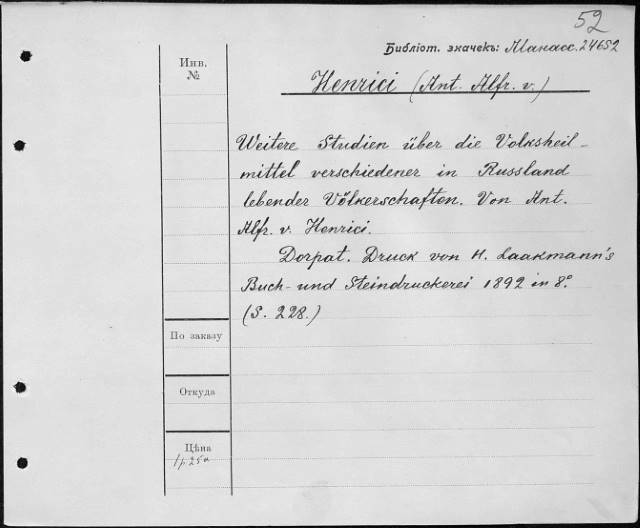 52
Библіот. значекъ: Манасс. 24652
Инв.
№
Henrici (Ant. Alfr. v.)
Weitere Studien über die Volksheil-
mittel verschiedener in Russland
lebender Völkerschaften. Von Ant.
Alfr. v. Henrici.
Dorpat. Druck von H. Laakmann's
Buch- und Steindruckerei 1892 in 8°.
(S. 228.)
По заказу
Откуда
Цѣна